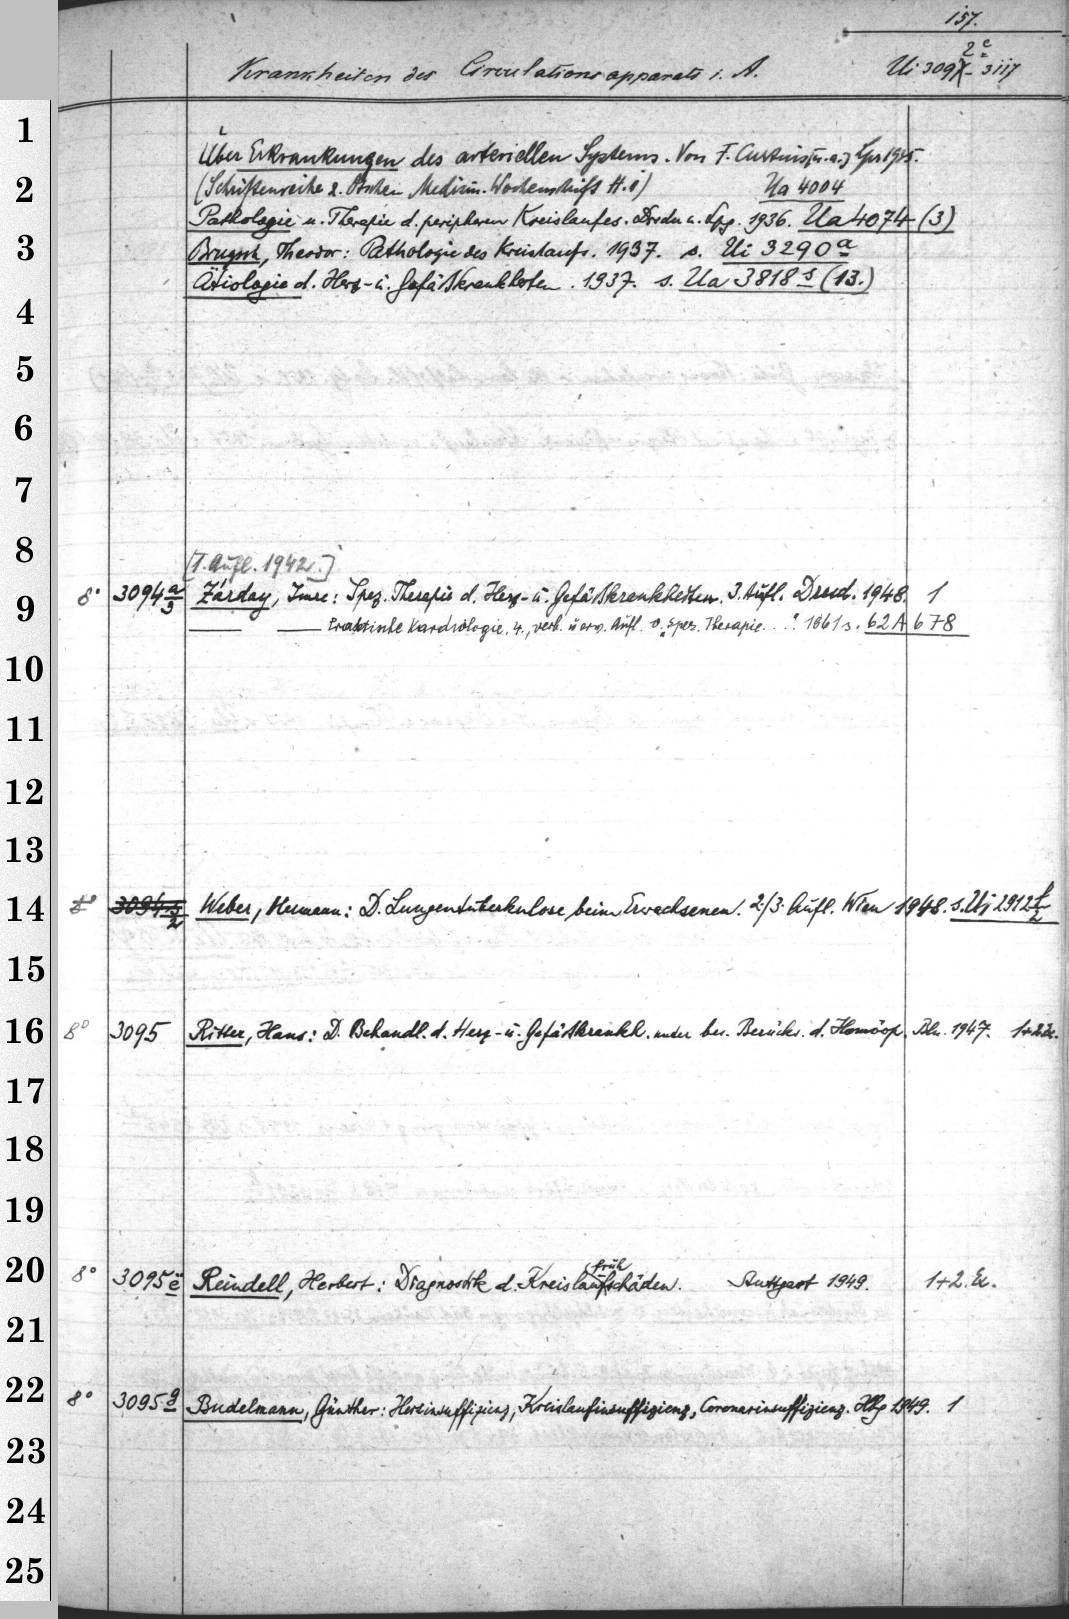 157.
Krankheiten des Circulationsapparats i. A.
2 e
Ui 309 - 3117
1
Über Erkrankungen des arteriellen Systems. Von F. Curtius [u. a.] Lpz 1935.
2
(Schriftenreihe d. Medizin. Wochenschrift H. 1) Ua 4004
Pathologie u. Therapie d. peripheren Kreislaufes. Dresden u. Lpg. 1936. Ua 4074 (3)
3
Brugsch, Theodor: Pathologie des Kreislaufs. 1937. s. Ui 3290 a
Ätiologie d. Herz- u. Gefäßkrankheiten. 1937. s. Ua 3818 s (13.)
4
5
6
7
8
[1. Aufl. 1942.]
9
8° 3094 a/3 Zárday, Imre: Spez. Therapie d. Herz- u. Gefäßkrankheiten. 3. Aufl. Dresd. 1948. 1
— — Praktische Kardiologie. 4., verb. u erw. Aufl. v. „Spez. Therapie . . ." 1961 s. 62 A 678
10
11
12
13
14
8° 3094 Weber, Hermann: D. Lungentuberkulose beim Erwachsenen. 2/3. Aufl. Wien 1948. s. Uj 2912 f/2
15
16
8° 3095 Ritter, Hans: D. Behandl. d. Herz- u. Gefäßkrankh. unter bes. Berücks. d. Homöop. Bln. 1947. 1+2. Ex.
17
18
19
20
früh
8° 3095 e Reindell, Herbert: Diagnostik d. Kreislaufschäden. Stuttgart 1949. 1+2. Ex.
21
22
8° 3095 g Budelmann, Günther: Herzinsuffizienz, Kreislaufinsuffizienz, Coronarinsuffizienz. Hbg 1949. 1
23
24
25